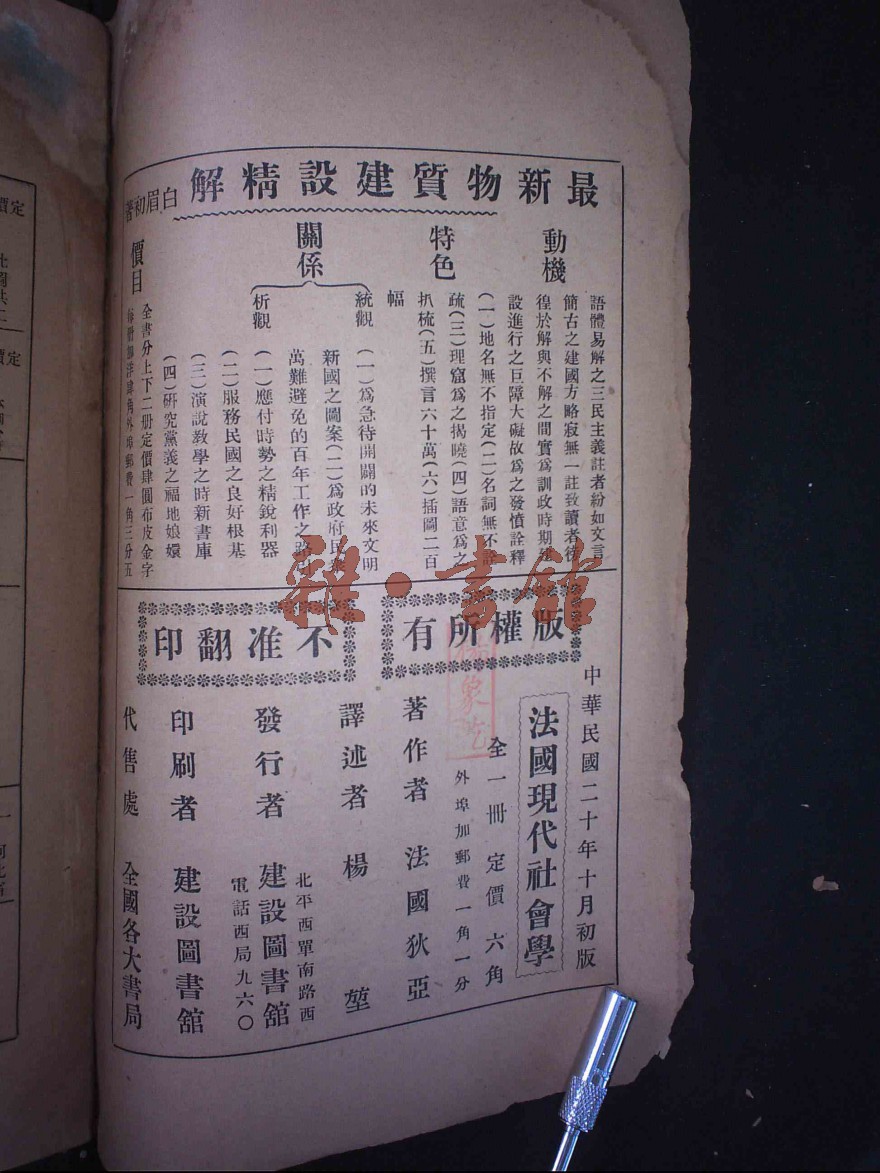 最新物質建設精解
白眉初著
動機
語體易解之三民主義註者紛如文言
簡古之建國方略寂無一註致讀者徬
徨於解與不解之間實爲訓政時期建
設進行之巨障大礙故爲之發憤詮釋
特色
(一)地名無不指定(二)名詞無不註
疏(三)理窟爲之揭曉(四)語意爲之
扒梳(五)撰言六十萬(六)插圖二百
幅
關係
統觀
(一)爲急待開闢的未來文明
新國之圖案(二)爲政府民衆
萬難避免的百年工作之路
析觀
(一)應付時勢之精銳利器
(二)服務民國之良好根基
(三)演說教學之時新書庫
(四)研究黨義之福地娘嬛
價目
全書分上下二册定價肆圓布皮金字
每册加洋肆角外埠郵費一角三分五
雜·書館
版權所有
不准翻印
中華民國二十年十月初版
法國現代社會學
全一冊 定價六角
外埠加郵費一角一分
著作者 法國狄亞
譯述者 楊堃
發行者 建設圖書舘
北平西單南路西
電話西局九六〇
印刷者 建設圖書舘
代售處 全國各大書局
定